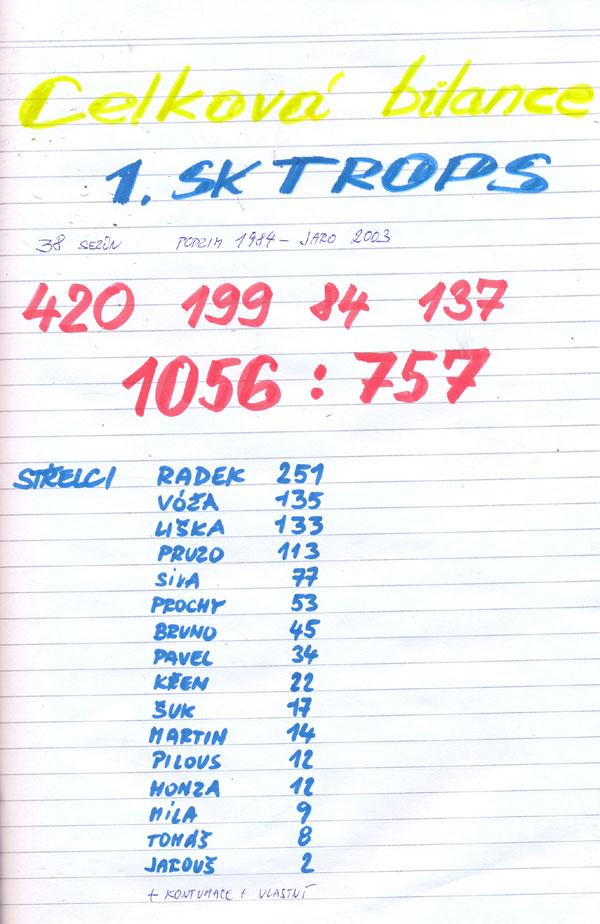 Celková bilance
1. SK TROPS
38 SEZÓN PODZIM 1984 - JARO 2003
420 199 84 137
1056 : 757
STŘELCI RADEK 251
VÓŽA 135
LIŠKA 133
PRUZO 113
SíVA 77
PROCHY 53
BRUNO 45
PAVEL 34
KŘEN 22
ŠUK 17
MARTIN 14
PILOUS 12
HONZA 12
MíLA 9
TOMÁŠ 8
JAROUŠ 2
+ KONTUMACE + VLASTNÍ